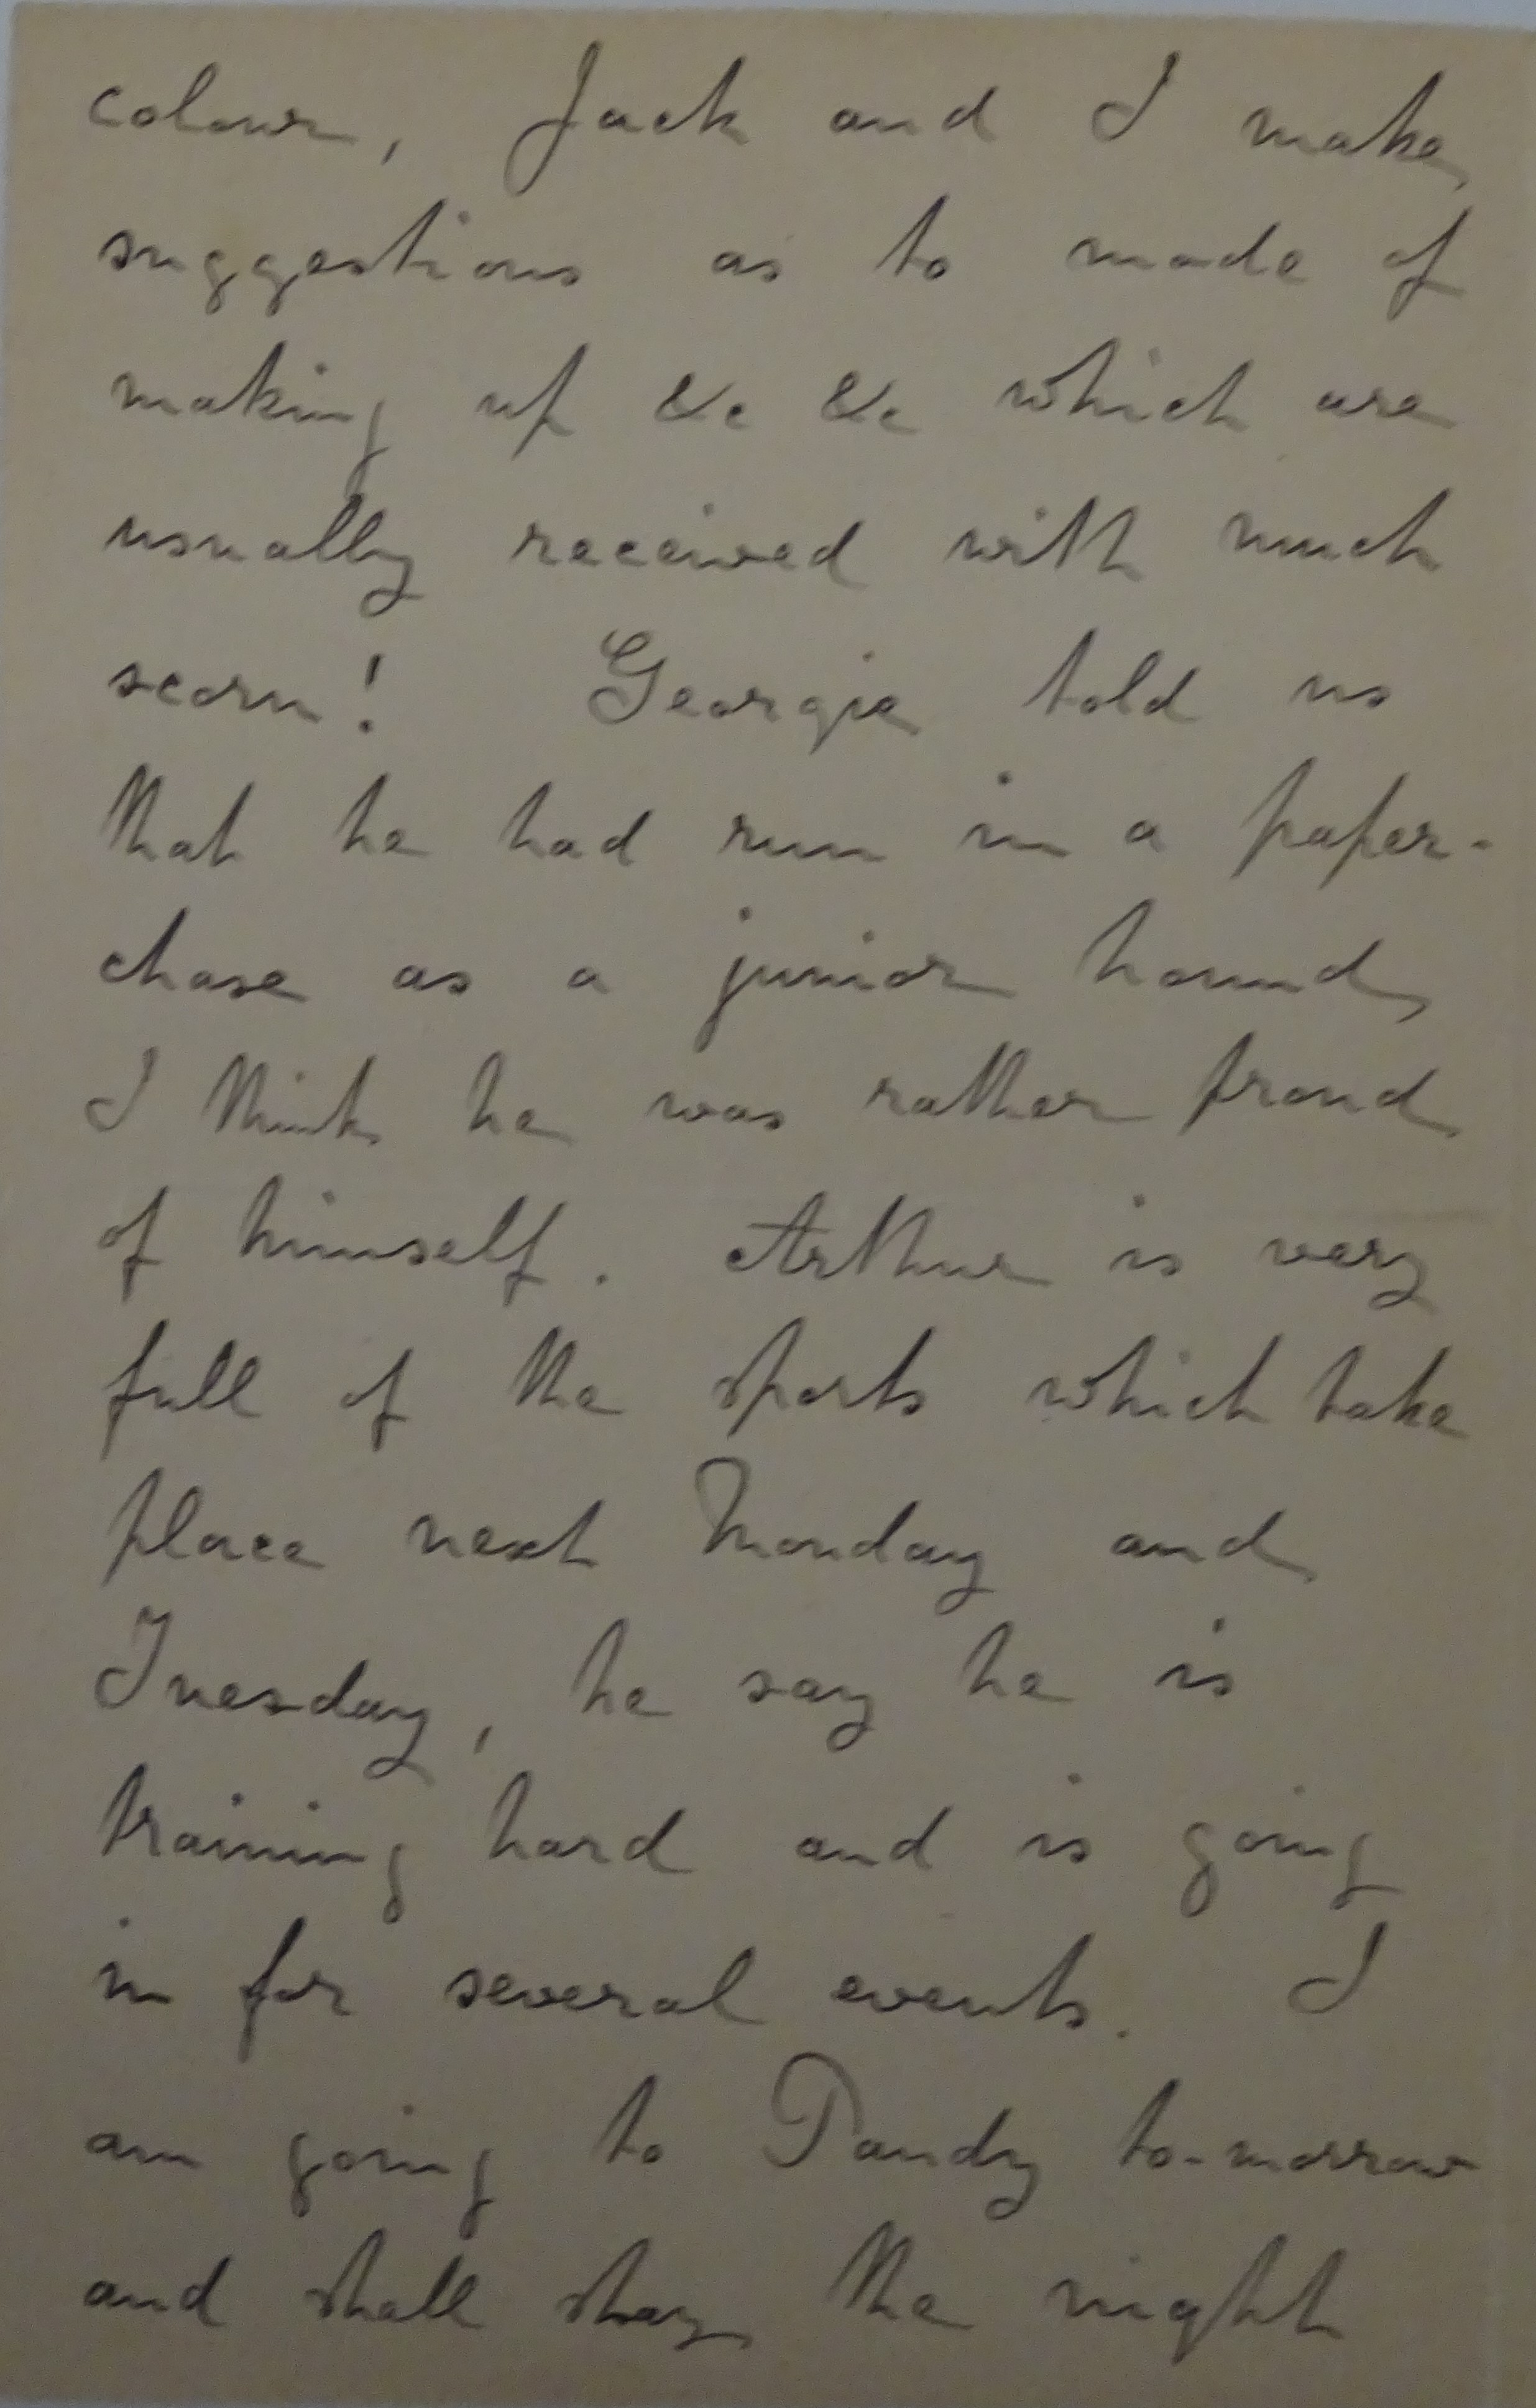 colour, Jack and I make
suggestions as to mode of
making up &c &c which are
usually received with much
scorn! Georgie told us
that he had run in a paper-
chase as a junior hound
I think he was rather proud
of himself. Arthur is very
full of the sports which take
place next Monday and
Tuesday, he say he is
training hard and is going
in for several events. I
am going to Pandy to-morrow
and shall stay the night